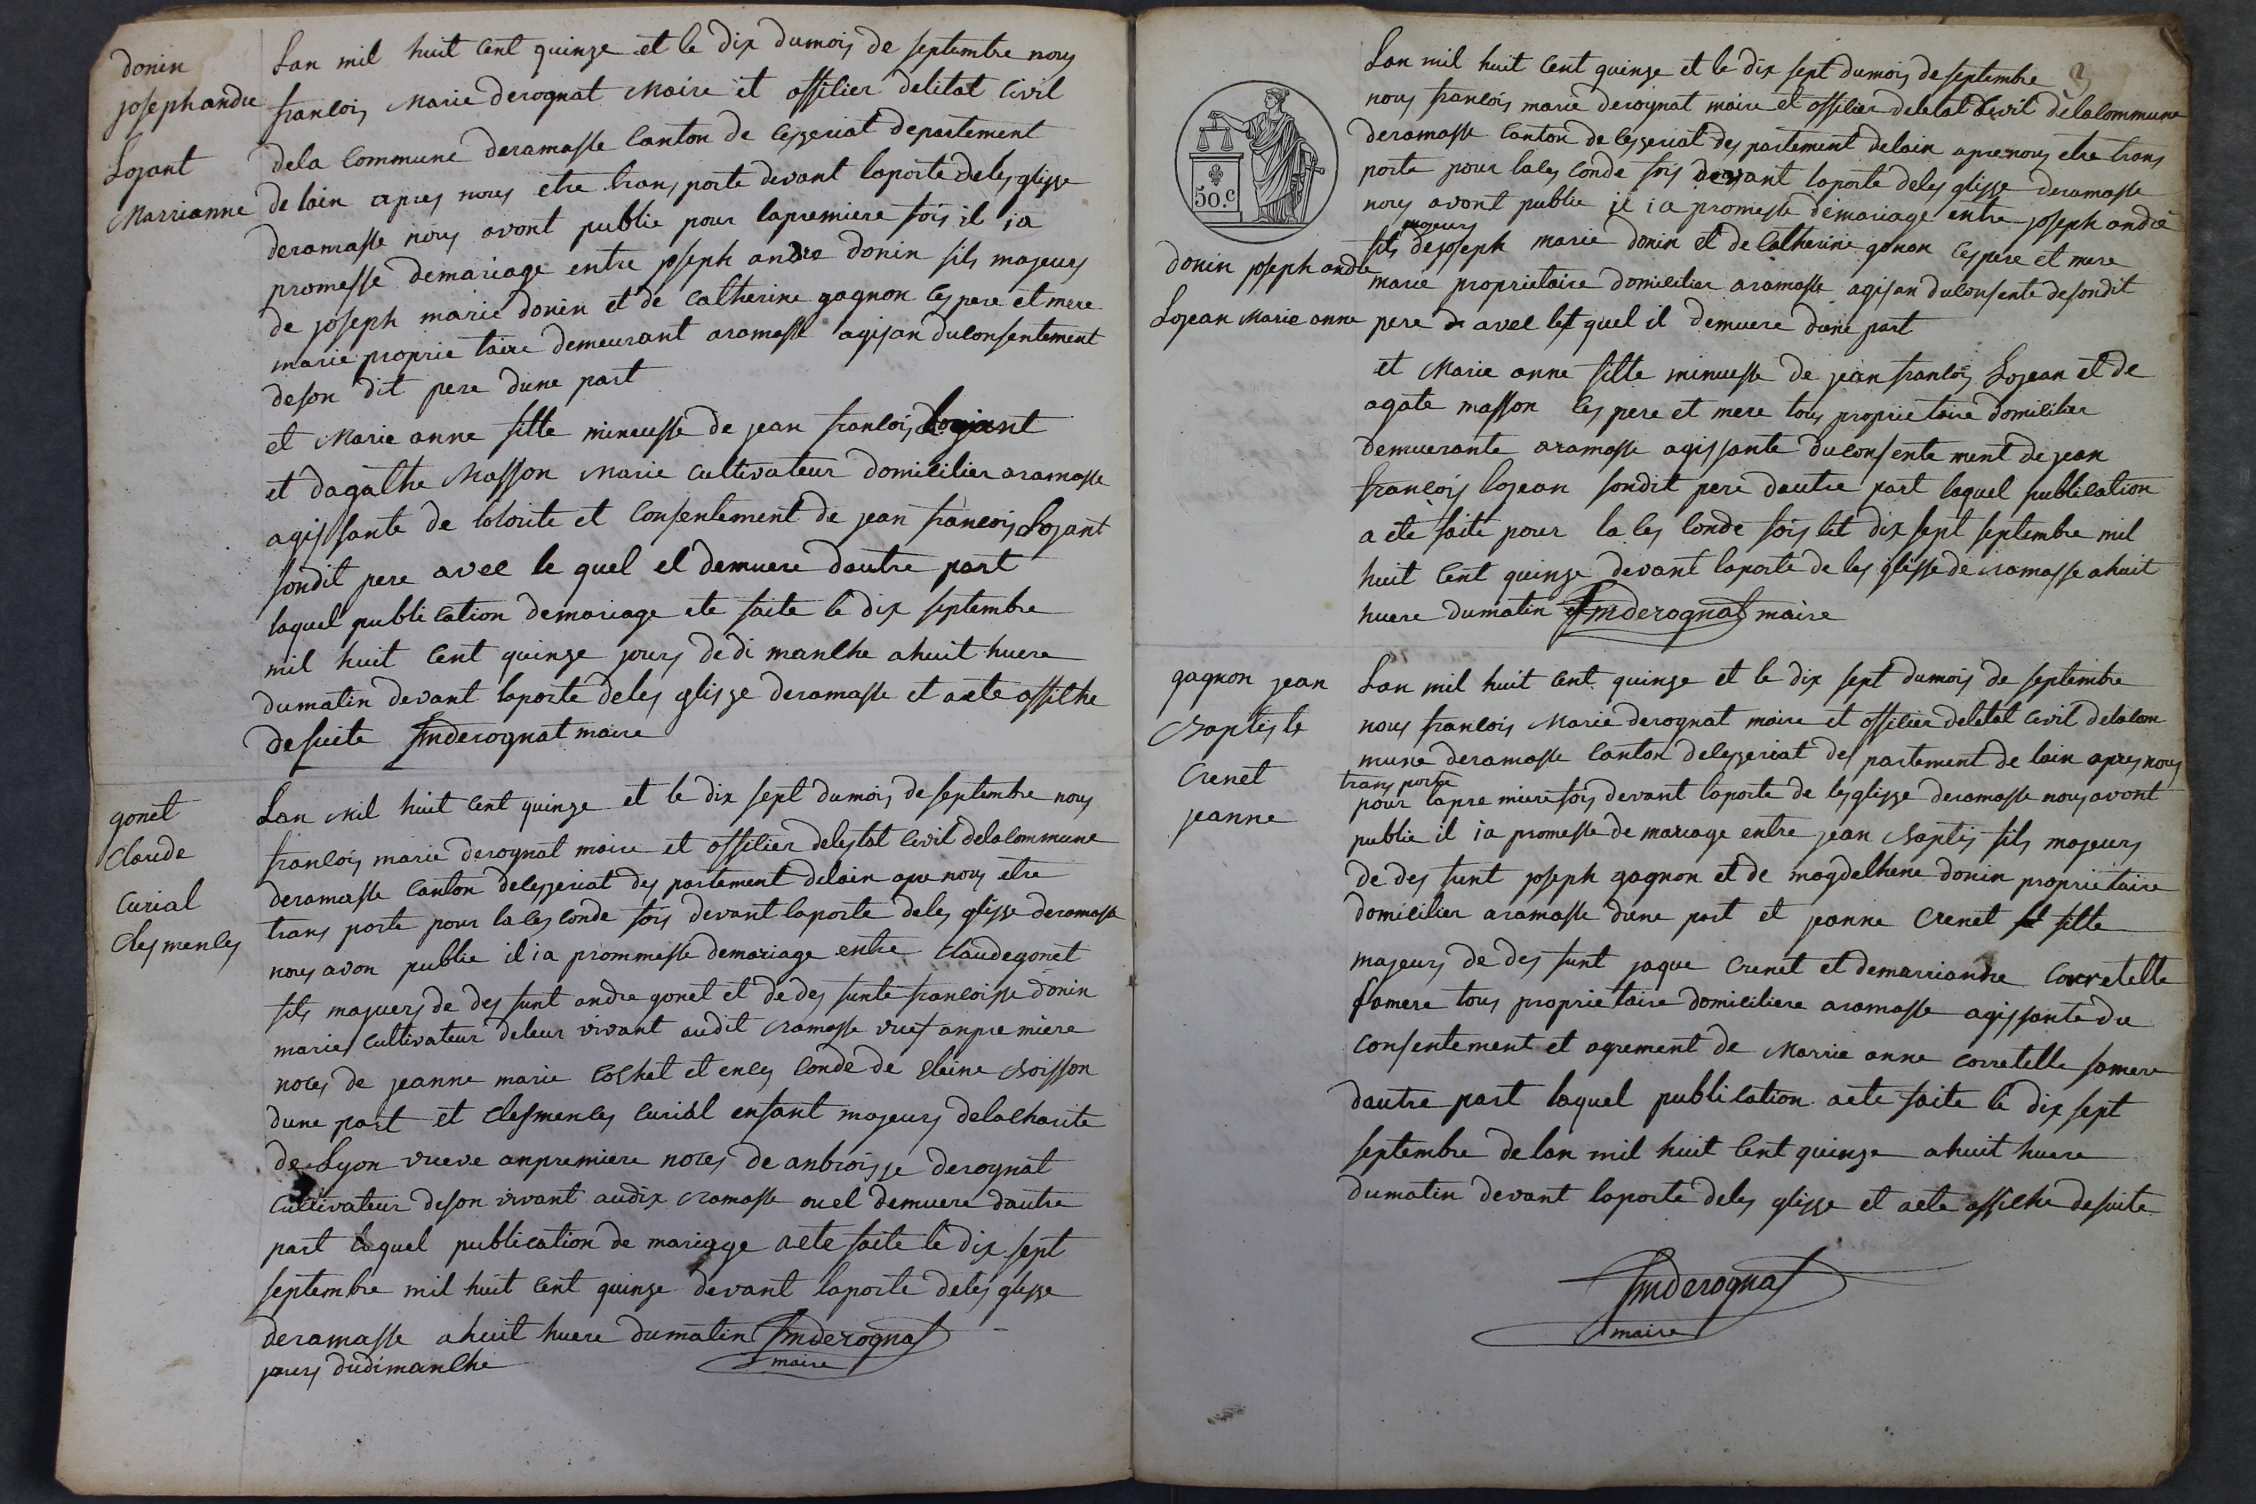 donin
joseph andre
Lojant
Marrianne
Lan mil huit Cent quinze et le dix dumois de septembre nous
francois Marie derognat Maire et offilier deletat Civil
dela Commune deramasse Canton de Cezeriat departement
de lain apres nous etre trans porte devant laporte deles glisse
deramasse nous avont publie pour lapremiere fois il ia
promesse demariage entre joseph andre donin fils majeurs
de joseph marie donin et de Catherine gagnon Ces pere et mere
marie proprie taire demeurant aramasse agisan duconsentement
deson dit pere dune part
et Marie anne fille mineusse de jean francois Lojant
et dagathe Masson Marie Cultivateur domicilier aramasse
agissante de lotorite et Consentement de jean francois Lojant
sondit pere avec le quel el demuere dautre part
laquel publication demariage ete faite le dix septembre
mil huit Cent quinze jours dedi manche ahuit huere
dumatin devant laporte deles glisse deramasse et aete affiche
desuite fmderognat maire
gonet
Claude
Curial
Clesmences
Lan Mil huit Cent quinze et le dix sept dumois de septembre nous
francois marie derognat maire et offilier delestat Civil delacommune
deramasse Canton decezeriat des partement delain apre nous etre
trans porte pour laces conde fois devant laporte deles glisse deramasse
nous avon publie il ia prommesse demariage entre Claudegonet
fils majuers de des funt andre gonet et de des funte francoisse donin
marie Cultivateur deleur vivant audit ramasse vuef anpre miere
noces de jeanne marie Cochet et ences conde de Cleine Boisson
dune part et Clesmences Curial enfant majeurs delacharite
de Lyon vueve anpremiere noces de anbroisse derognat
Cultivateur deson vivant audix ramasse ouel demuere dautre
part laquel publication de mariage aete faite le dix sept
septembre mil huit Cent quinze devant laporte deles glisse
deramasse ahuit huere dumatin fmderognat
jours dudimanche maire
3
50.c
donin joseph andre
Lojean Marie anne
Lan mil huit Cent quinze et le dix sept dumois deseptembre
nous francois marie derognat maire et offilier deletat Civil delacommune
deramasse Canton de Cezeriat des partement delain aprenous etre trans
porte pour laces conde fois devant laporte deles glisse deramasse
nous avont publie il ia promesse demariage entre joseph andre
majeurs
fils dejoseph marie donin et de Catherine gonon Ces pere et mere
marie proprietaire domicilier aramasse agisan duconsente desondit
pere avec lequel il demuere dune part
et Marie anne fille minuesse de jean francois Lojean et de
agate masson Ces pere et mere tous proprietaire domicilier
demuerante aramasse agissante duconsente ment de jean
francois lojean sondit pere dautre part laquel publication
a ete faite pour la ces conde fois let dix sept septembre mil
huit Cent quinze devant laporte de les glisse de ramasse ahuit
huere dumatin fmderognat maire
gagnon jean
Baptiste
Crenet
jeanne
Lan mil huit Cent quinze et le dix sept dumois de septembre
nous francois Marie derognat maire et offilier deletat Civil delacom
mune deramasse Canton decezeriat des partement de lain apres nous
trans porte
pour lapre miere fois devant laporte de lesglisse deramasse nous avont
publie il ia promesse de mariage entre jean Baptis fils majeurs
de des funt joseph gagnon et de magdelhene donin proprietaire
domicilier aramasse dune part et jeanne Crenet fille
majeurs de des funt jaque Crenet et demarrianne Corretelle
samere tous proprietaire domiciliere aramasse agissante du
consentement et agrement de Marie anne Corretelle samere
dautre part laquel publication aete faite le dix sept
septembre de lan mil huit Cent quinze ahuit huere
dumatin devant laporte deles glisse et aete affiche desuite
fmderognat
maire